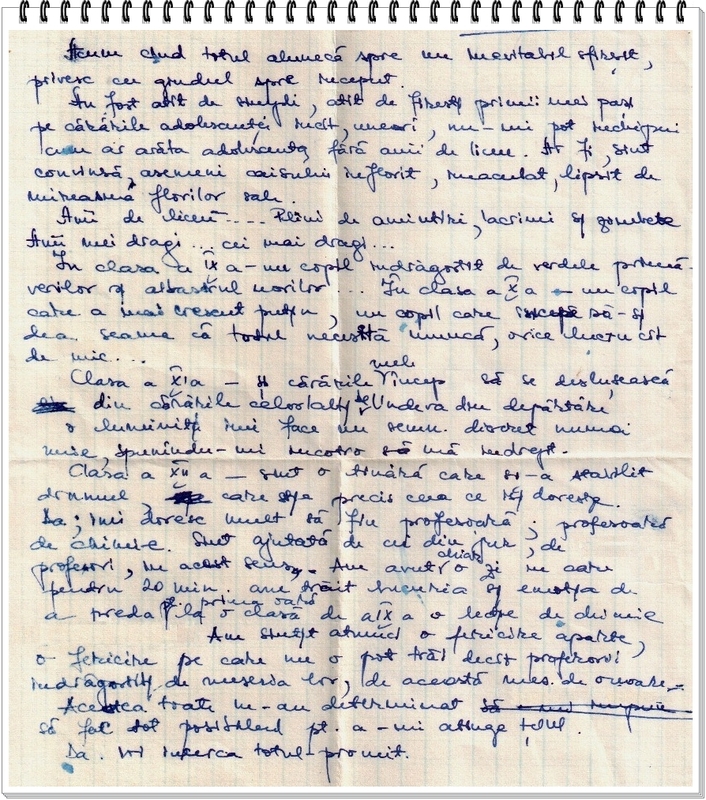 Acum cînd totul alunecă spre un inevitabil sfîrșit,
privesc cu gîndul spre început.
Au fost atît de simpli, atît de firești primii mei pași
pe cărările adolescenței încît, uneori, nu-mi pot închipui
cum ar arăta adolescența fără anii de liceu. Ar fi, sînt
convinsă, asemeni caisului neflorit, imaculat, lipsit de
mireasmă florilor sale.
Anii de liceu.... Plini de amintiri, lacrimi și zîmbete
Anii mei dragi... cei mai dragi...
În clasa a IX a - un copil îndrăgostit de verdele primă-
verilor și albastrul norilor... În clasa a X a - un copil
care a mai crescut puțin, un copil care începe să-și
dea seama că totul necesită muncă, orice lucru cît
de mic....
Clasa a XI a - și cărările mele încep să se deslușească
din cărările celorlalți. Undeva din depărtări
o luminiță îmi face un semn discret numai
mie, spunîndu-mi încotro să mă îndrept.
Clasa a XII a - sînt o tînără care și-a stabilit
drumul, care știe precis ceea ce își dorește.
Da; îmi doresc mult să fiu profesoară; profesoară
de chimie. Sînt ajutată de cei din jur, de
profesori, în acest sens. Am avut chiar o zi în care
pentru 20 min. am trăit bucuria și emoția de
a preda pt. prima oară la o clasă de a IX a o lecție de chimie
Am simțit atunci o fericire aparte,
o fericire pe care nu o pot trăi decît profesorii
îndrăgostiți de meseria lor, de această mes. de onoare.
Acestea toate m-au determinat să-mi impun
să fac tot posibilul pt. a-mi atinge țelul.
Da. Voi încerca totul-promit.